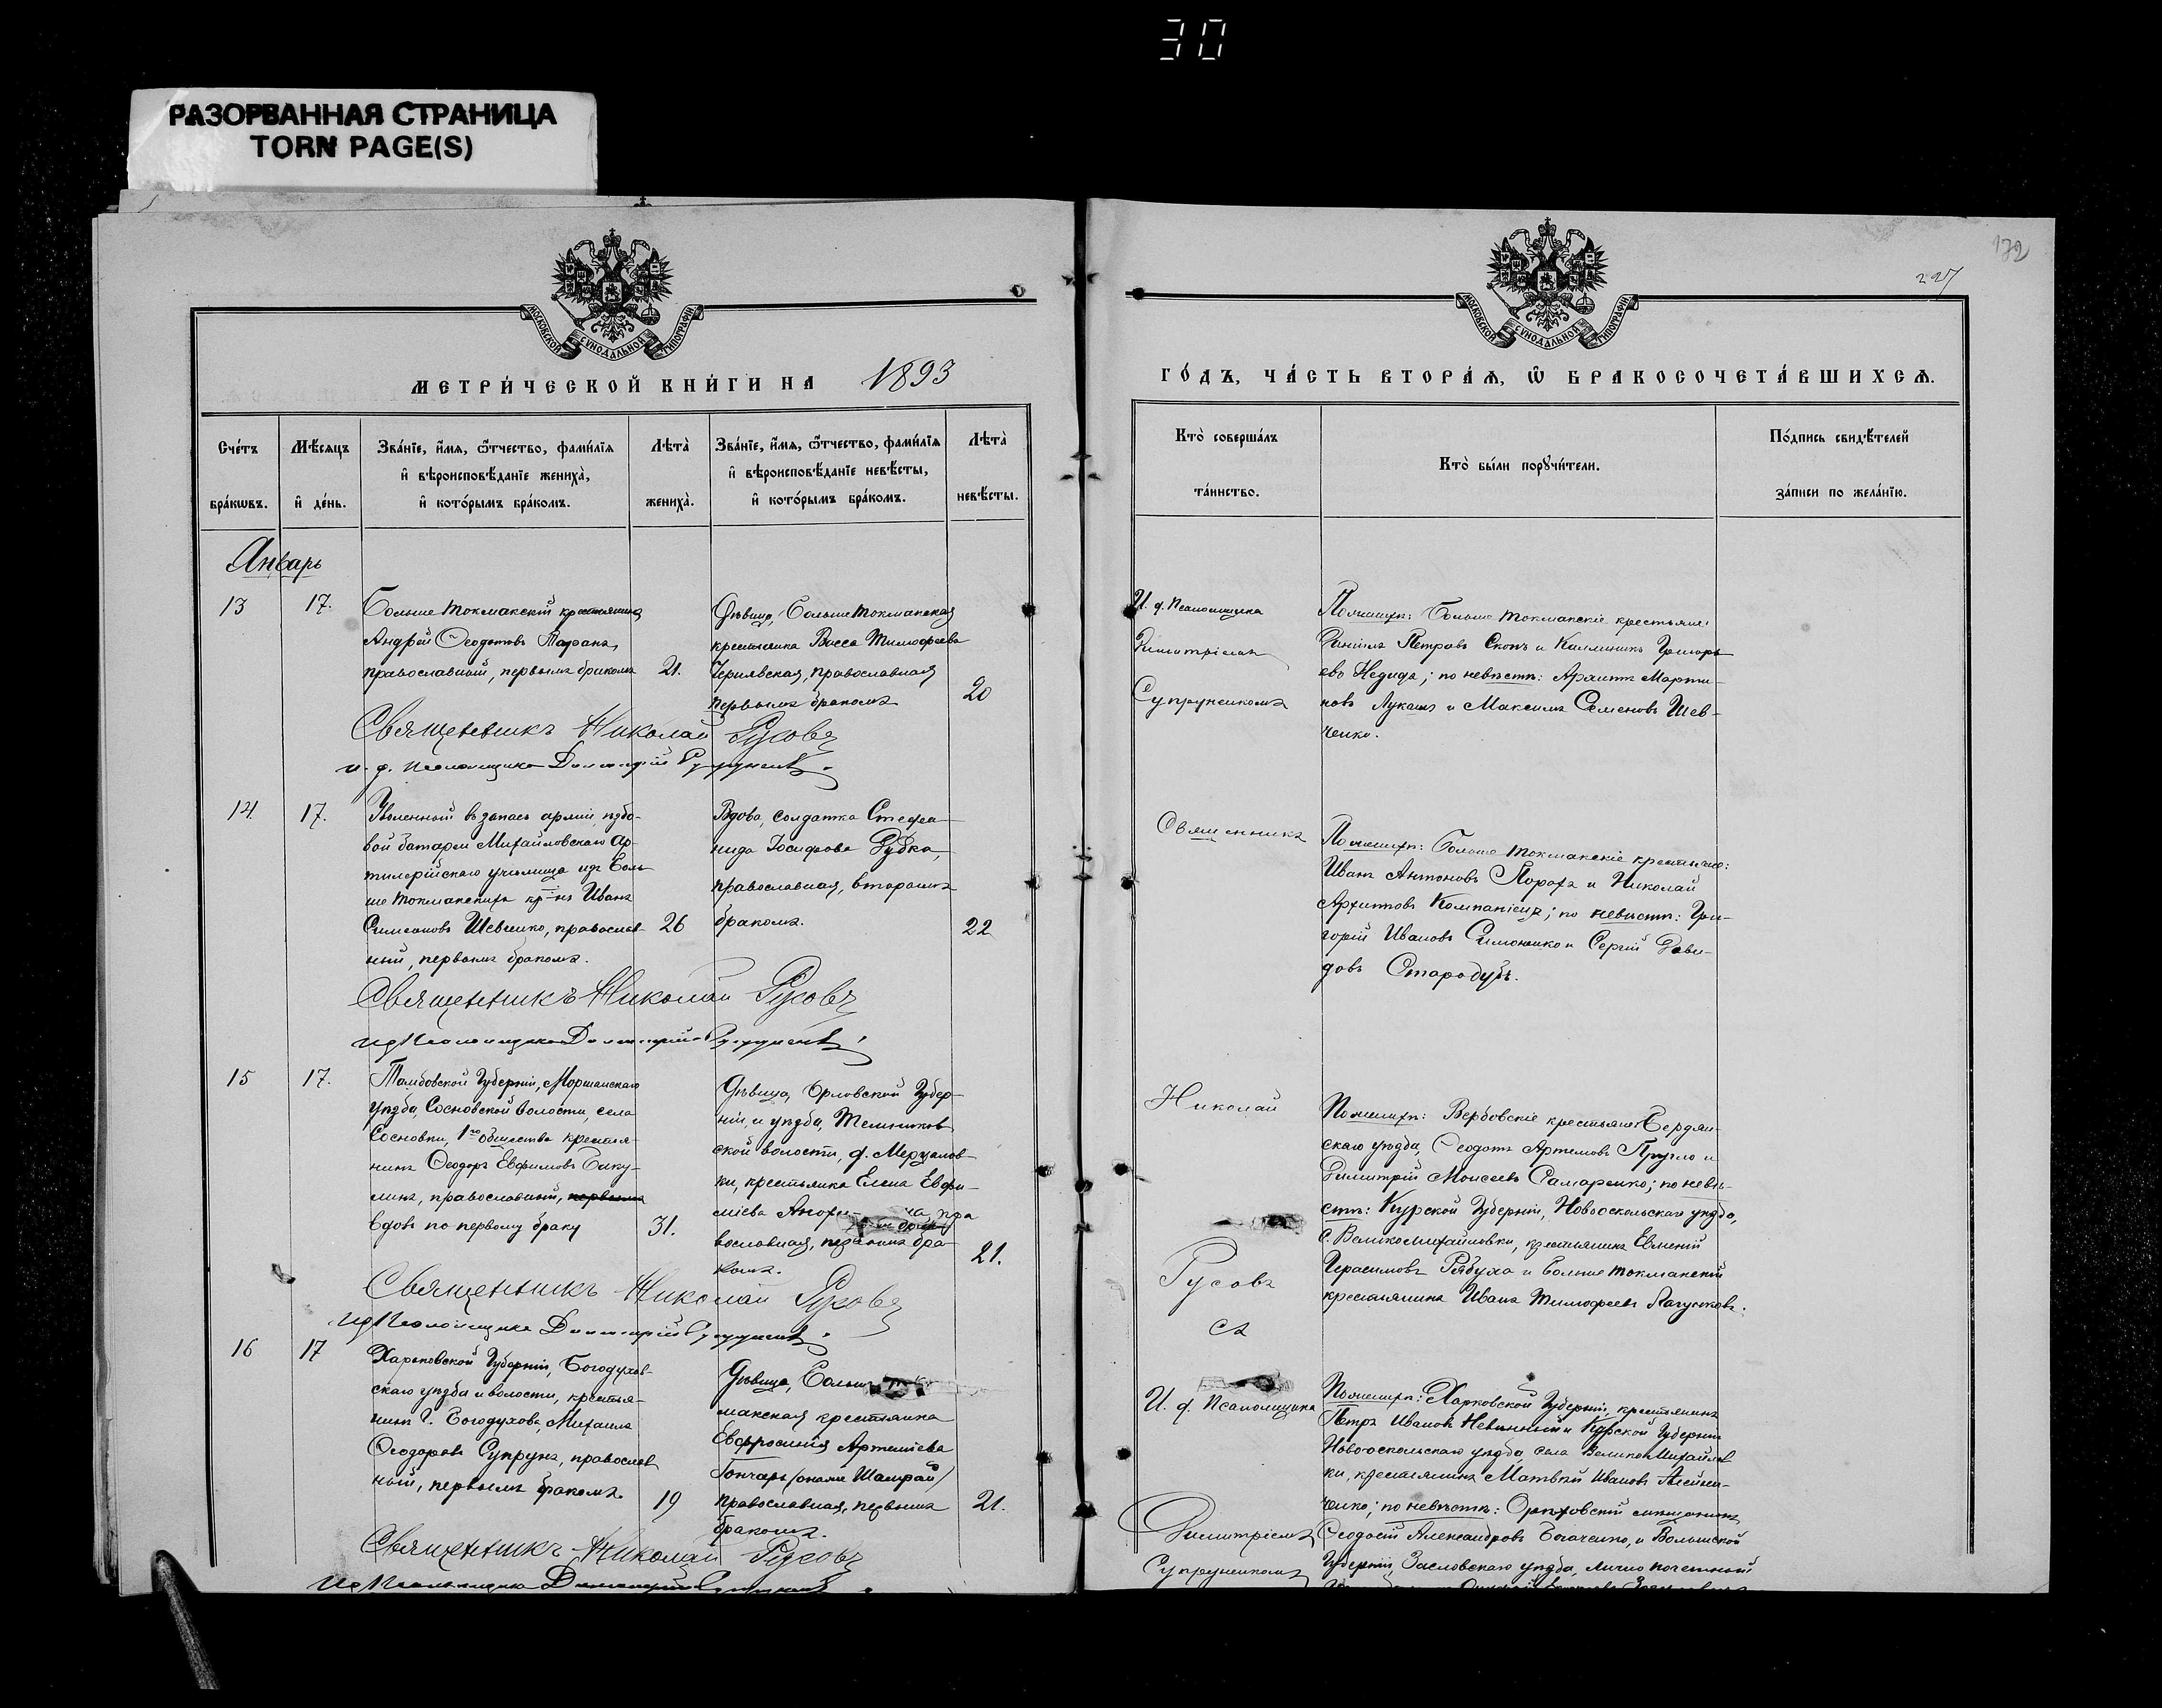 30
РАЗОРВАННАЯ СТРАНИЦА
TORN PAGE(S)
МОСКОВСКОЙ СѴНОДАЛЬНОЙ ТИПОГРАФІИ
МЕТРИ́ЧЕСКОЙ КНИ́ГИ НА 1893
Сче́тъ бра́кѡвъ.
Мѣ́сяцъ и҆ де́нь.
Зва́нїе, и҆́мѧ, ѻ҆́тчество, фами́лїѧ
и҆ вѣроисповѣ́данїе жениха̀,
и҆ кото́рымъ бра́комъ.
Лѣта̀ жениха̀.
Зва́нїе, и҆́мѧ, ѻ҆́тчество, фами́лїѧ
и҆ вѣроисповѣ́данїе невѣ́сты,
и҆ кото́рымъ бра́комъ.
Лѣта̀ невѣ́сты.
Январь
13
17.
Больше Токмакскій крестьянинъ
Андрей Ѳеодотовъ Таранъ,
православный, первымъ бракомъ
21.
Дѣвица, Больше Токмакская
крестьянка Васса Тимофеева
Чернявская, православная
первымъ бракомъ
20
Священникъ Николай Русовъ
и. д. псаломщика Димитрій Супруненко.
14.
17.
Уволенный въ запасъ арміи, учебо-
вой батареи Михайловскаго Ар-
тилерійскаго училища изъ Боль-
ше Токмакскихъ кр-нъ Иванъ
Симеоновъ Шевченко, православ-
ный, первымъ бракомъ.
26
Вдова, солдатка Стефа-
нида Іосифова Дубка,
православная, вторымъ
бракомъ.
22
Священникъ Николай Русовъ
ид Псаломщика Димитрій Супруненко.
15
17.
Тамбовской Губерніи, Моршанскаго
уѣзда, Сосновской волости, села
Сосновки, 1го общества крестья-
нинъ Ѳеодоръ Евфимовъ
православный, первымъ
вдовъ по первому браку
31.
Дѣвица, Орловской Губер-
ніи, и уѣзда,
ской волости, д. Мерцалов-
ки, крестьянка Елена Евфи-
міева на, пра
вославная, первымъ бра-
комъ.
21.
Священникъ Николай Русовъ
ид Псаломщика Димитрій Супруненко.
16
17
Харьковской Губерніи, Богодухов-
скаго уѣзда и волости, крестья-
нинъ г. Богодухова, Михаилъ
Ѳеодоровъ Супрунъ, православ
ный, первымъ бракомъ.
19
Дѣвица, Больше Ток
макская крестьянка
Евфросинія Артеміева
Гончаръ (онаже Шамрай)
православная, первымъ
бракомъ.
21.
Священникъ Николай Русовъ
ид Псаломщика Димитрій Супруненко.
172
227
МОСКОВСКОЙ СѴНОДАЛЬНОЙ ТИПОГРАФІИ
ГО́ДЪ, ЧА́СТЬ ВТОРА́Ѧ, Ѽ БРАКОСОЧЕТА́ВШИХСѦ.
Кто̀ соверша́лъ
та́инство.
Кто̀ бы́ли порꙋчи́тели.
По́дпись свидѣ́телей
за́писи по жела́нїю.
И. д. Псаломщика
Димитріемъ
Супруненкомъ
По женихѣ: Больше Токмакскіе крестьяне:
Даніилъ Петровъ Скопъ и Каллиникъ Григорь
евъ Недида; по невѣстѣ: Архипъ Марти-
новъ Лукашъ и Максимъ Семеновъ Шев-
ченко.
Священникъ
По женихѣ: Больше Токмакскіе крестьяне:
Иванъ Антоновъ Порохъ и Николай
Архиповъ Компаніецъ; по невѣстѣ: Гри-
горій Ивановъ Симоненко и Сергій Дави-
довъ Стародубъ.
Николай
Русовъ
съ
По женихѣ: Вербовскіе крестьяне Бердян-
скаго уѣзда, Ѳеодотъ Артемовъ Пругло и
Димитрій Моисеевъ Самаренко; по невѣ-
стѣ: Курской Губерніи, Новооскольскаго уѣзда,
с. Великомихайловки, крестьянинъ Евменій
Герасимовъ Рябуха и Больше Токмакскій
крестьянинъ Иванъ Тимофеевъ Лагутковъ.
И. д. Псаломщика
Димитріемъ
Супруненкомъ
По женихѣ: Харьковской Губерніи, крестьянинъ
Петръ Ивановъ Невинный и Курской Губерніи
Новооскольскаго уѣзда, села Великомихайлов
ки, крестьянинъ Матвѣй Ивановъ Алейни-
ченко; по невѣстѣ: Орѣховскій мѣщанинъ
Ѳеодосій Александровъ и Волынской
Губерніи, Заславскаго уѣзда, лично почетный